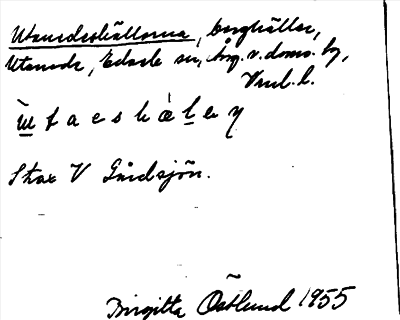 Utanedeshällorna, berghällar,
Utanede, Edsele sn, Ång. v. doms. by,
Vnl. l.
Strax V Gårdsjön.
Birgitta Östlund 1955